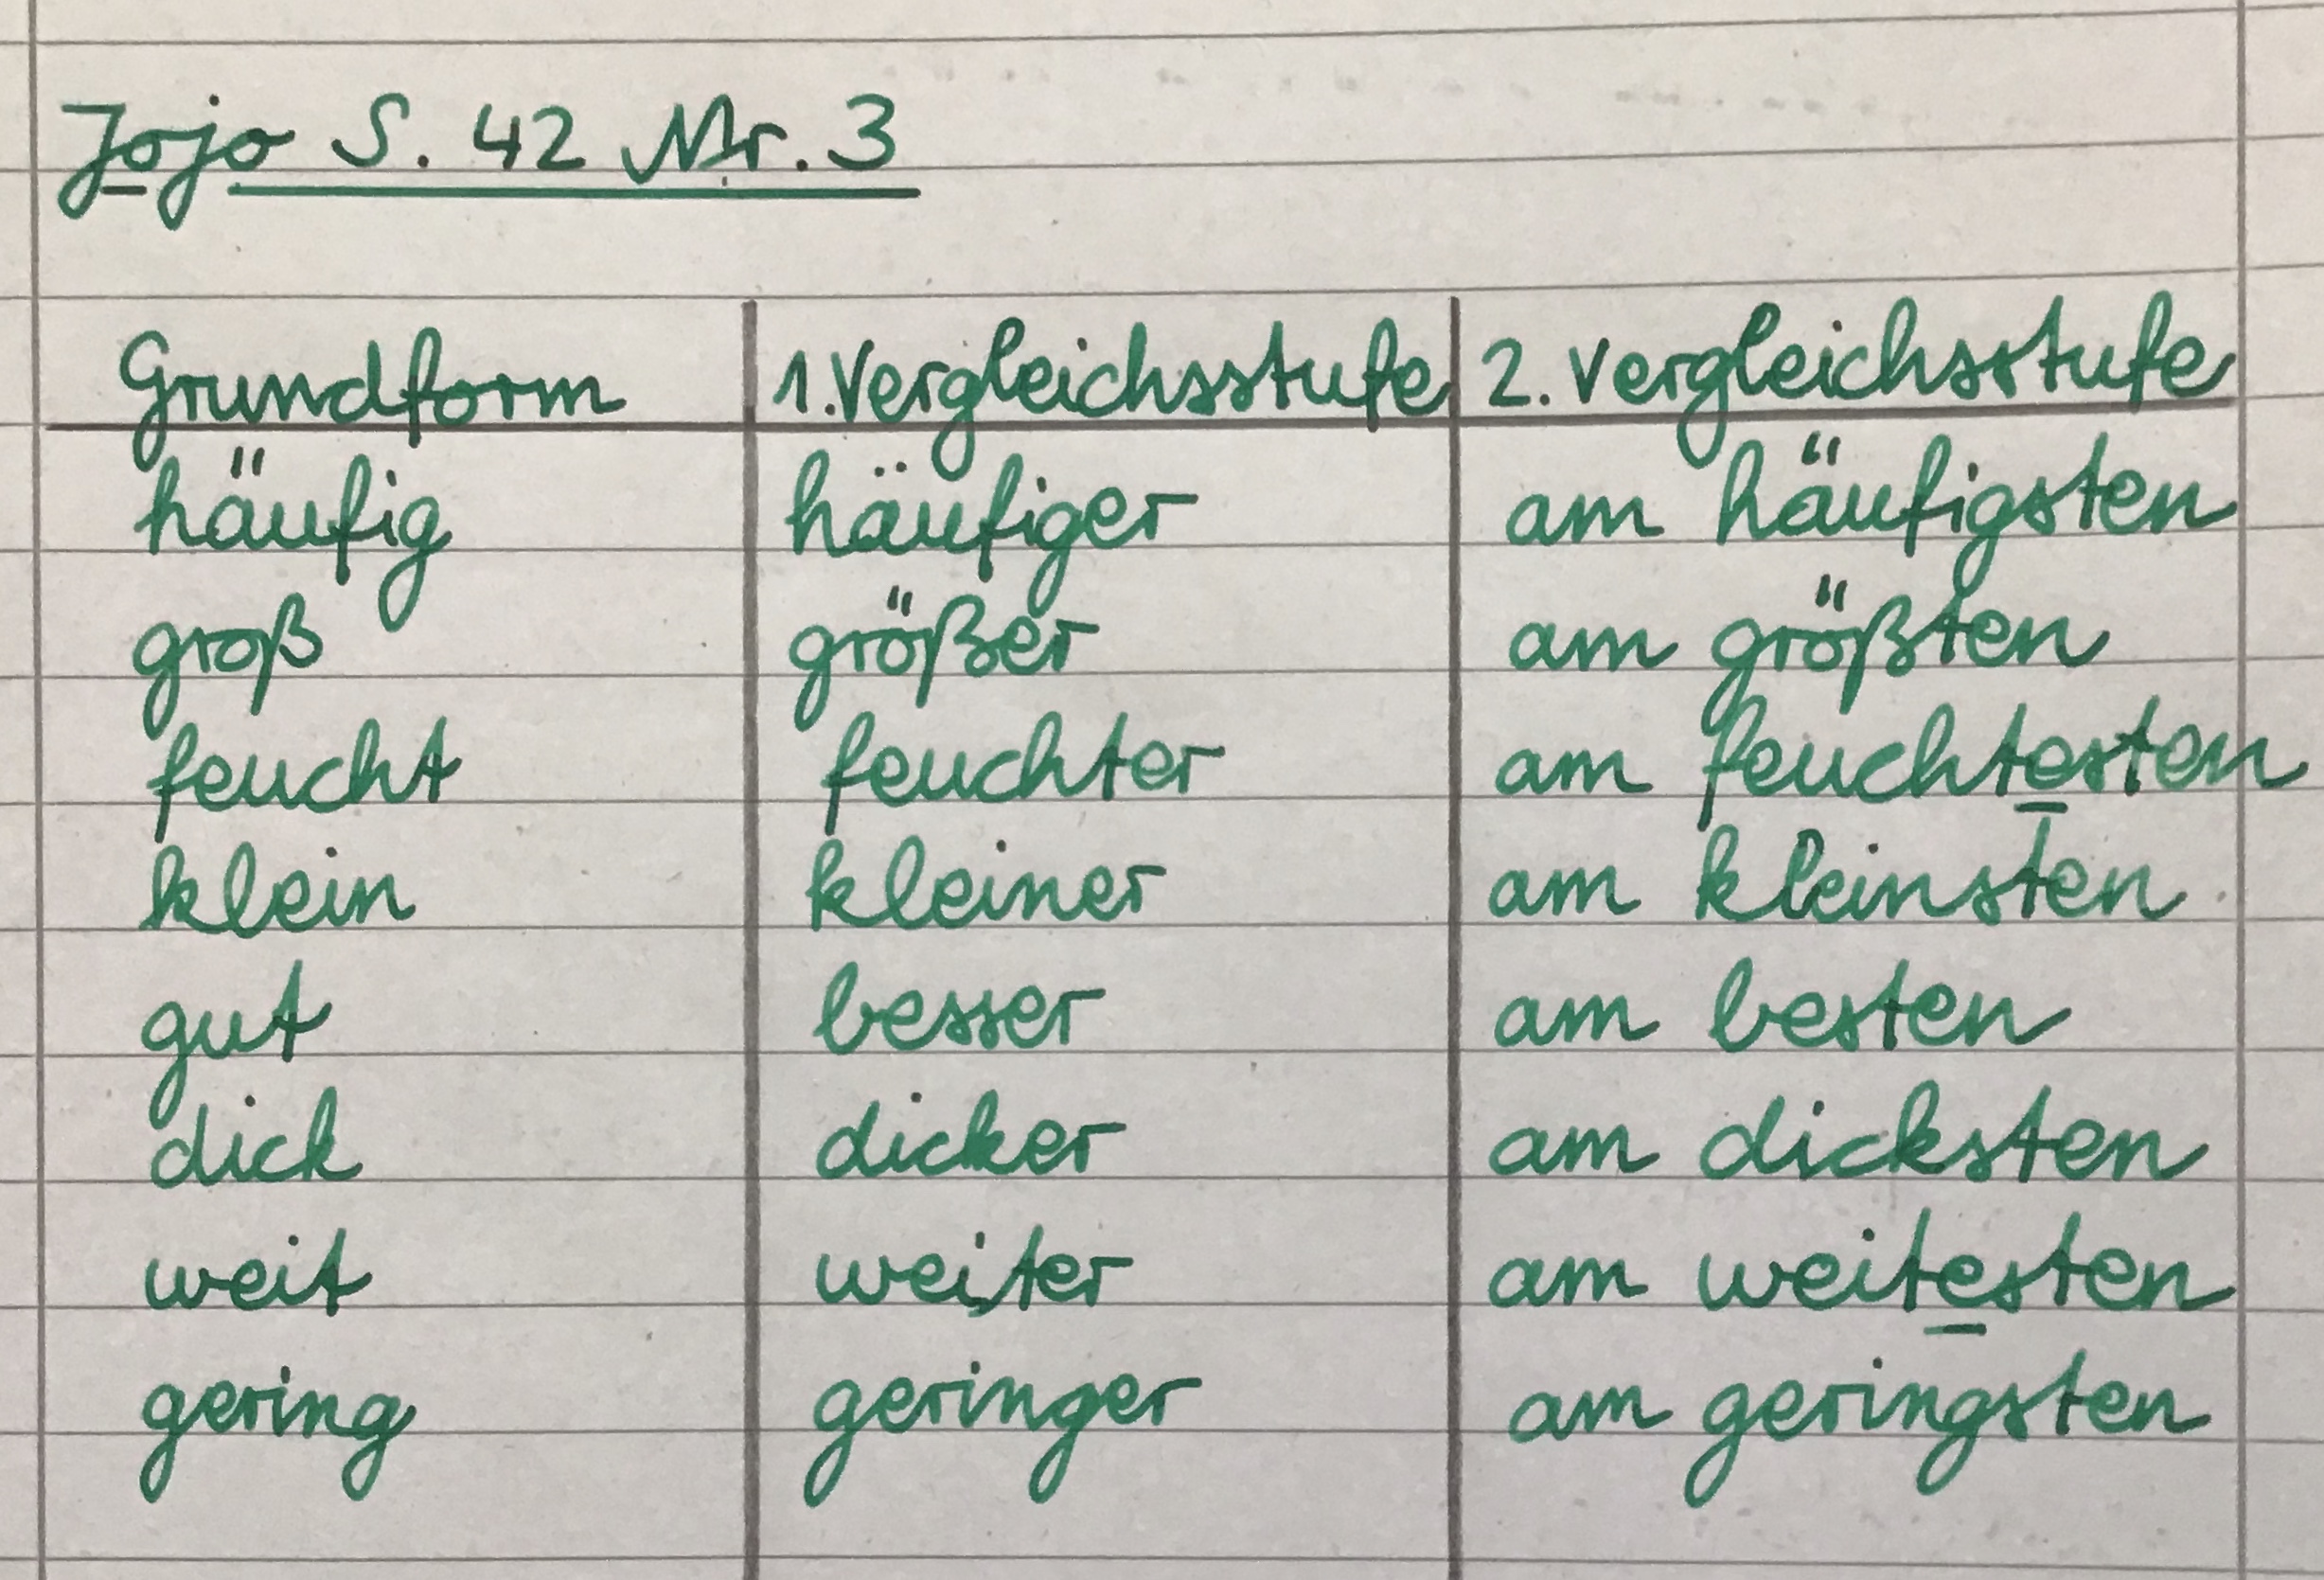 Jojo S. 42 Nr. 3
Grundform 1. Vergleichsstufe 2. Vergleichsstufe
häufig häufiger am häufigsten
groß größer am größten
feucht feuchter am feuchtesten
klein kleiner am kleinsten
gut besser am besten
dick dicker am dicksten
weit weiter am weitesten
gering geringer am geringsten